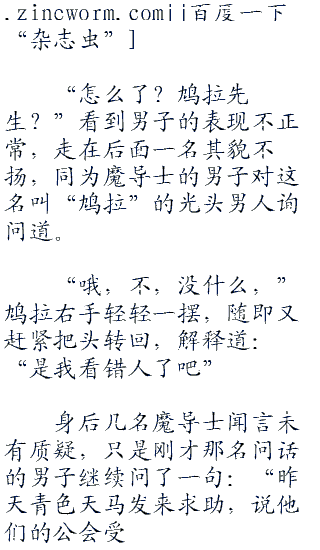 .zincworm.com||百度一下
“杂志虫”]
“怎么了？鸠拉先
生？”看到男子的表现不正
常，走在后面一名其貌不
扬，同为魔导士的男子对这
名叫“鸠拉”的光头男人询
问道。
“哦，不，没什么，”
鸠拉右手轻轻一摆，随即又
赶紧把头转回，解释道：
“是我看错人了吧”
身后几名魔导士闻言未
有质疑，只是刚才那名问话
的男子继续问了一句：“昨
天青色天马发来求助，说他
们的公会受